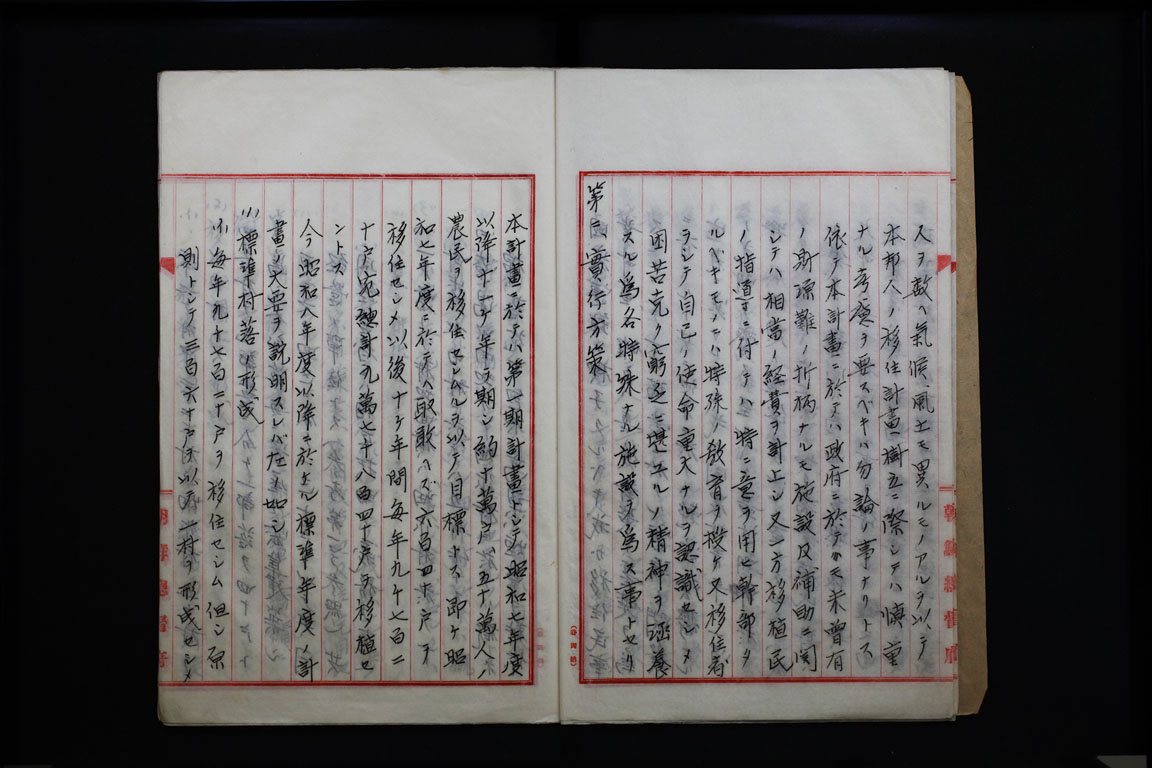 人ヲ敵ヘ氣候、風土モ異ルモノアルヲ以テ
本邦人ノ移住計畫樹立ニ際シテハ慎重
ナル考慮ヲ要スベキハ勿論ノ事ナリトス
依テ本計畫ニ於テハ政府ニ於テカモ未曽有
ノ財源難ノ折柄ナルモ施設及補助ニ関
シテハ相當ノ経費ヲ計上シ又一方移植民
ノ指導ニ付テハ特ニ意ヲ用ヒ幹部タ
ルベキモノニハ特殊ノ教育ヲ授ケ又移住者
ヲシテ自己ノ使命重大ナルヲ認識セシメ
困苦克ク窮乏ニ堪エルノ精神ヲ涵養
スル為各特殊ナル施設ヲ為ス事トセリ
第二、實行方策
本計畫ニ於テハ第一期計畫トシテ昭和七年度
以降十一ケ年ヲ期シ約十萬戸、五十萬人ノ
農民ヲ移住セシムルヲ以テ目標トス即ケ昭
和七年度ニ於テハ取敢ヘズ六百四十戸ヲ
移住セシメ以後十ケ年間毎年九千七百二
十戸宛總計九萬七千八百四十戸ヲ移植セ
ントス
今昭和八年度以降ニ於ケル標準年度ノ計
畫ノ大要ヲ説明スレバ左ノ如シ
(一)標準村落ノ形成
(イ)毎年九千七百二十戸ヲ移住セシム但シ原
則トシテ三百六十戸ヲ以テ一村ヲ形成セシメ
朝鮮總督府